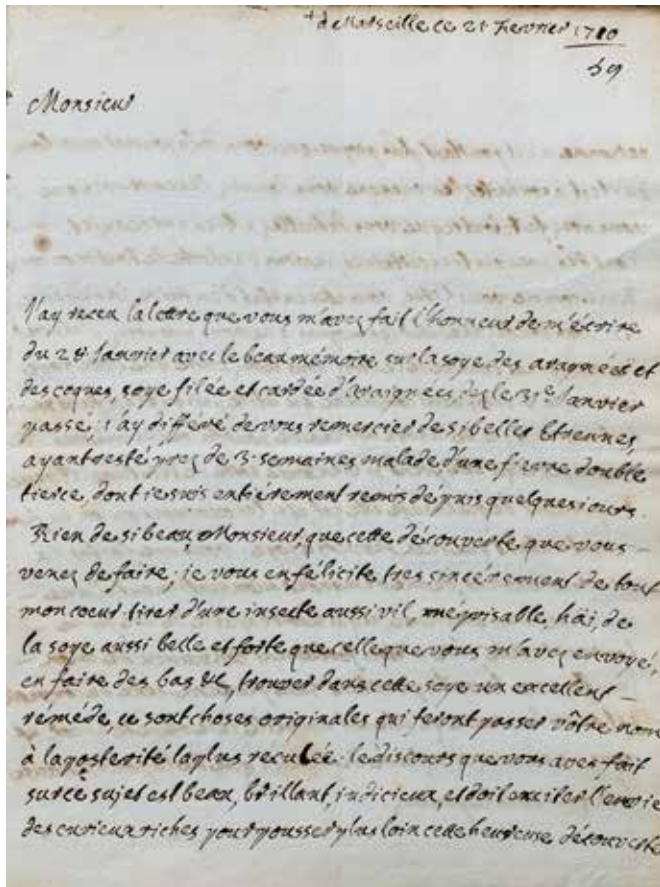 de Marseille ce 21 Fevrier 1710
59
Monsieur
J'ay receu la lettre que vous m'avez fait l'honneur de m'écrire
du 28 Janvier avec le beau mémoire sur la soye des aragnées et
des coques, soye filée et cardée d'araignées, des le 31e Janvier
passé, j'ay différé de vous remercier de si belles Etrennes,
ayant resté prez de 3 semaines malade d'une fievre double
tierce, dont ie suis entiérement remis dépuis quelques iours.
Rien de si beau, Monsieur, que cette découverte que vous
venez de faire; ie vous en félicite tres sincérement de tout
mon coeur. tirer d'une insecte aussi vil, méprisable, häi, de
la soye aussi belle et forte que celle que vous m'avez envoyé,
en faire des bas &c, trouver dans cette soye un excellent
rémede, ce sont choses originales qui feront passer vôtre nom
à la posterité la plus reculée. le discours que vous avez fait
sur ce sujet est beau, brillant, judicieux, et doit exciter l'envie
des curieux riches pour pousser plus loin cette heureuse découverte